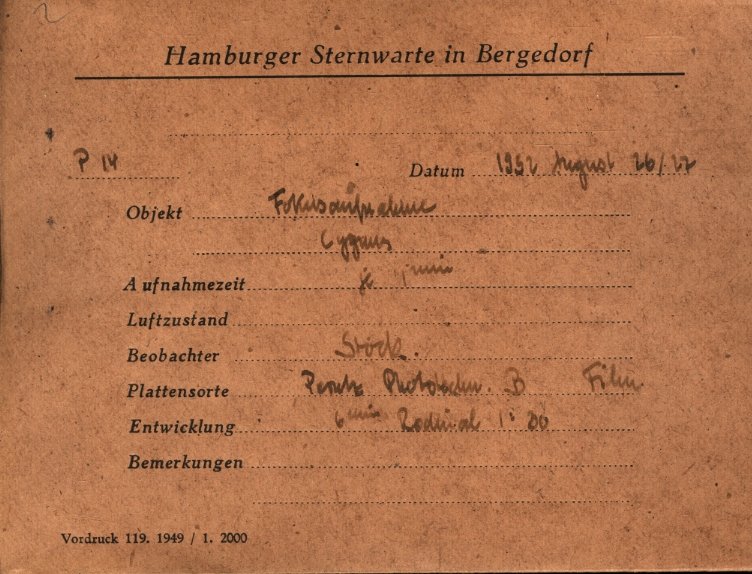 Hamburger Sternwarte in Bergedorf
P 14 Datum 1952 August 26/27
Objekt Fokusaufnahme
Cygnus
Aufnahmezeit je min
Luftzustand
Beobachter Stock.
Plattensorte Perutz Phototechn. B Film
Entwicklung 6 min Rodinal 1:
Bemerkungen
Vordruck 119. 1949 / 1. 2000